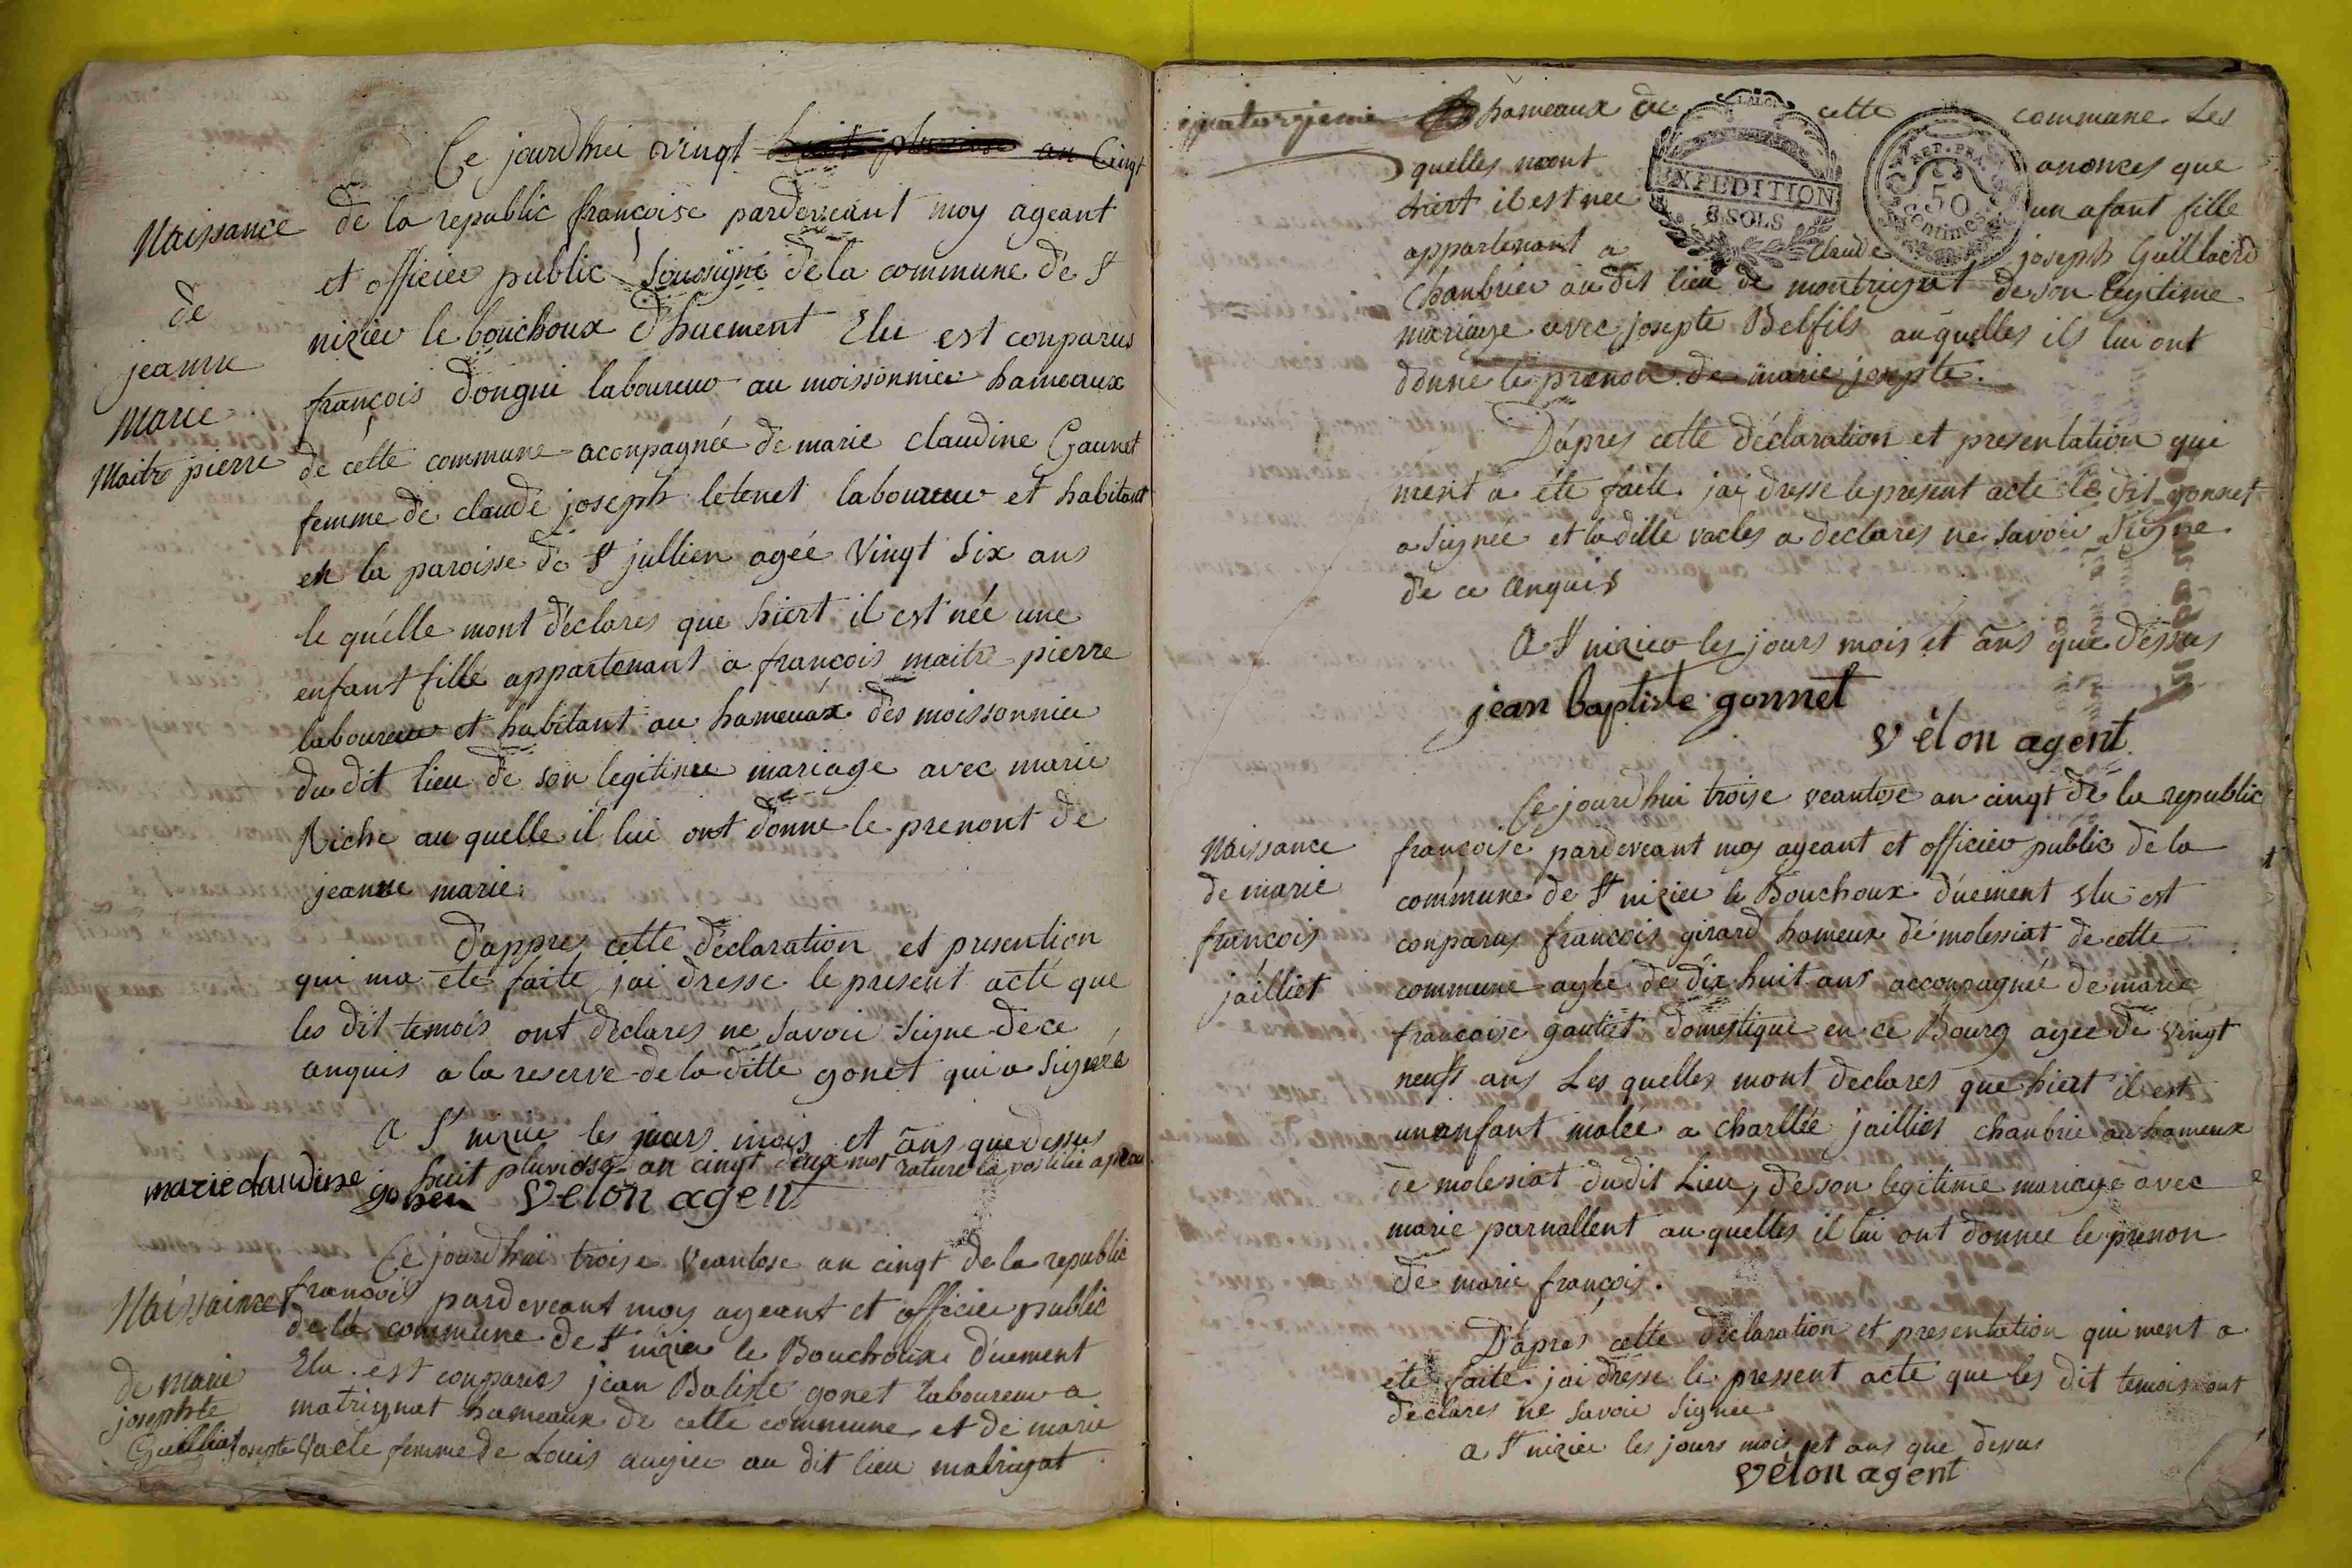 Ce jourdhui vingt huit pluviose an Cinqt
Naissance
de
jeanne
Marie
Maitre pierre
de la republic francoise pardeveant moy ageant
et officier public soussigné de la commune de St
nizier le bouchoux dhuement Elu est conparus
françois dongui laboureur au moissonnier hameaux
de cette commune aconpagnée de marie claudine Gaunet
femme de claude joseph letenet laboureur et habitant
en la paroisse de St jullien agée vingt six ans
le quelle mont declares que hiert il est née une
enfant fille appartenant a françois maitre pierre
laboureur et habitant au hameuax des moissonnier
du dit lieu de son legitimee mariage avec marie
Riche au quelle il lui ont donne le prenont de
jeanne marie.
Dappres cette declaration et presention
qui ma été faite jai dresse le present acte que
les dit temois ont declares ne savoir signe de ce
anquis a la reserve de la ditte gonet qui a signée
A St nizier les jours mois et ans que dessus
huit pluviose an cingt deux mot rature
marie claudine gonet
velon agent
Ce jourdhui troise veantose an cinqt de la republic
Naissaince
de marie
josephte
Guilliat
francois pardeveant moy ageant et officier public
de la commune de St nizier le Bouchoux duement
Elu est conparus jean Batiste gonet laboureur a
matrignat hameaux de cette commune et de marie
josepte vacle femme de Louis augier au dit lieu matrignat
hameaux de cette commune Les
quelles mont anonces que
hiert il est nee un afant fille
appartenant a Claude joseph Guillaerd
Chanbrier au dit lieu de montrignat de son legitime
mariage avec josepte Belfils auquelles ils lui ont
donne le prenon de marie josepte.
EXPEDITION
8 SOLS
REP. FRA.
50
Centimes
Dapres cette declaration et presentation qui
ment a été faite jai dresse le present acte le dit gonnet
a signée et la ditte vacles a declares ne savoir Signe
de ce enquis
A St nizier les jours mois et ans que dessus
jean baptiste gonnet
vélon agent
Ce jourdhui troise veantose an cinqt de la republic
Naissance
de marie
francois
jailliet
francoise pardeveant moy ageant et officier public de la
commune de St nizier le Bouchoux duement elu est
conparus francois girard hameux de molessiat de cette
commune agée de dix huit ans acconpagnée de marie
francoise gautiet domestique en ce Bourg agee de vingt
neuft ans Les quelles mont declares que hiert il est
un anfant malée a charllée jaillies chanbrie au hameux
de molessiat du dit Lieu, de son legitime mariage avec
marie parnallent auquelles il lui ont donnee le prenon
de marie francois.
Dapres cette declaration et presentation qui ment a
été faite jai dresse le pressent acte que les dit temois ont
declares ne savoir signee
a St nizier les jours mois et ans que dessus
vélon agent